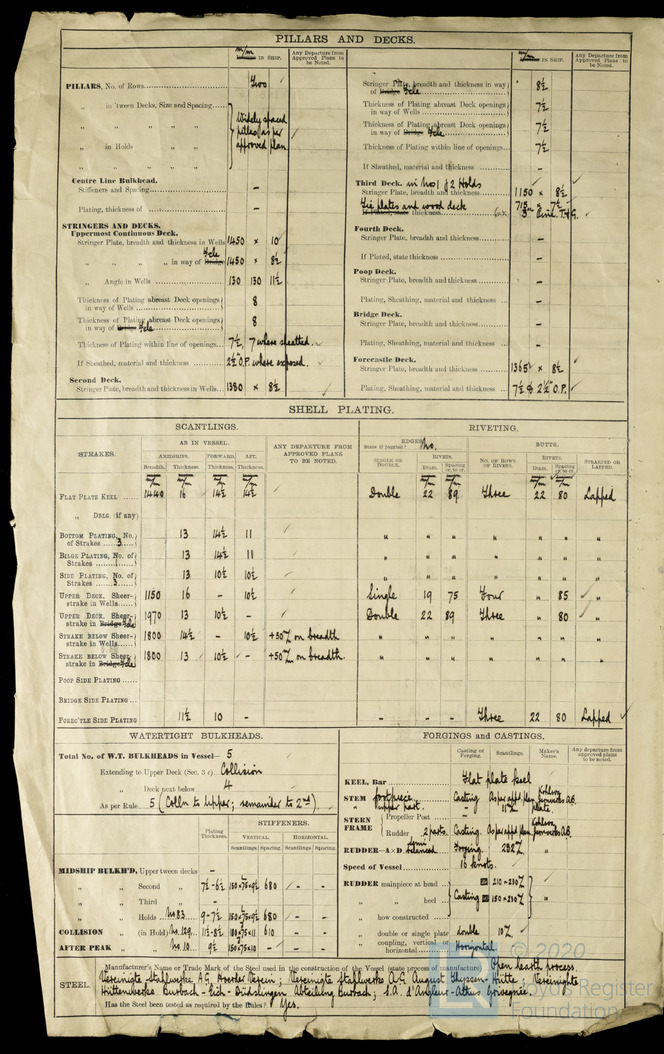 PILLARS AND DECKS.
m/m IN SHIP.
Any Departure from Approved Plans to be Noted.
PILLARS, No. of Rows Two
„ in 'Tween Decks, Size and Spacing
„ „ „ „ „
„ in Holds „ „
„ „ „ „ „
Widely spaced pillars as per approved plan
Centre Line Bulkhead.
Stiffeners and Spacing -
Plating, thickness of -
STRINGERS AND DECKS.
Uppermost Continuous Deck.
Stringer Plate, breadth and thickness in Wells 1450 × 10
„ „ „ „ in way of Bridge Fcle 1450 × 8½
„ Angle in Wells 130 130 11½
Thickness of Plating abreast Deck openings in way of Wells 8
Thickness of Plating abreast Deck openings in way of Bridge Fcle 8
Thickness of Plating within line of openings 7½, 7 where sheathed.
If Sheathed, material and thickness 2½" O.P. where exposed.
Second Deck.
Stringer Plate, breadth and thickness in Wells 1380 × 8½
m/m IN SHIP.
Any Departure from Approved Plans to be Noted.
Stringer Plate, breadth and thickness in way of Bridge Fcle 8½
Thickness of Plating abreast Deck openings in way of Wells 7½
Thickness of Plating abreast Deck openings in way of Bridge Fcle 7½
Thickness of Plating within line of openings 7½
If Sheathed, material and thickness -
Third Deck. in No 1 & 2 Holds
Stringer Plate, breadth and thickness 1150 × 8½
Tie plates and wood deck thickness 715 × 7½
Fourth Deck.
Stringer Plate, breadth and thickness -
If Plated, state thickness -
Poop Deck.
Stringer Plate, breadth and thickness -
Plating, Sheathing, material and thickness -
Bridge Deck.
Stringer Plate, breadth and thickness -
Plating, Sheathing, material and thickness -
Forecastle Deck.
Stringer Plate, breadth and thickness 1365 × 8½
Plating, Sheathing, material and thickness 7½ & 2½" O.P.
SHELL PLATING.
SCANTLINGS.
RIVETING.
STRAKES.
AS IN VESSEL.
ANY DEPARTURE FROM APPROVED PLANS TO BE NOTED.
EDGES.
State if joggled? No.
BUTTS.
AMIDSHIPS. FORWARD. AFT.
SINGLE OR DOUBLE.
RIVETS.
No. OF ROWS OF RIVETS.
RIVETS.
STRAPPED OR LAPPED.
Breadth. Thickness. Thickness. Thickness.
Diam. Spacing cr. to cr.
Diam. Spacing cr. to cr.
FLAT PLATE KEEL 1440 16 14½ 14½ Double 22 89 Three 22 80 Lapped
„ DBLG. (if any)
BOTTOM PLATING, No. of Strakes 3 13 14½ 11 „ „ „ „ „ „ „
BILGE PLATING, No. of Strakes 1 13 14½ 11 „ „ „ „ „ „ „
SIDE PLATING, No. of Strakes 3 13 10½ 10½ „ „ „ „ „ „ „
UPPER DECK, Sheerstrake in Wells 1150 16 - 10½ Single 19 75 Four „ 85 „
UPPER DECK, Sheerstrake in Bridge Fcle 1970 13 10½ - Double 22 89 Three „ 80 „
STRAKE BELOW Sheerstrake in Wells 1800 14½ - 10½ +50% on breadth „ „ „ „ „ „ „
STRAKE BELOW Sheerstrake in Bridge Fcle 1800 13 10½ - +50% on breadth. „ „ „ „ „ „ „
POOP SIDE PLATING
BRIDGE SIDE PLATING
FOREC'TLE SIDE PLATING 11½ 10 - - - - Three 22 80 Lapped
WATERTIGHT BULKHEADS.
Total No. of W.T. BULKHEADS in Vessel- 5
Extending to Upper Deck (Sec. 3 c). Collision
„ Deck next below 4
As per Rule 5 (Colln to Upper; remainder to 2nd).
Plating Thickness.
STIFFENERS.
VERTICAL. HORIZONTAL.
Scantlings Spacing. Scantlings Spacing.
MIDSHIP BULKH'D, Upper tween decks -
„ „ Second „ 7½-6½ 150×75×9½ 680 - -
„ „ Third „ -
„ „ Holds No 83 9-7½ 150×75×9½ 680 - -
COLLISION „ (in Hold) No. 129 11½-8½ 180×75×11 610 - -
AFTER PEAK „ „ No. 10 9½ 150×75×10 - -
FORGINGS and CASTINGS.
Casting or Forging. Scantlings. Maker's Name. Any departure from approved plans to be noted.
KEEL, Bar Flat plate keel
STEM footpiece Casting As per appd plan
„ upper part. - 11% plate
STERN FRAME Propeller Post -
Rudder „ 2 parts. Casting As per appd plan
RUDDER-A×D. Semi balanced Forging. 282%
Speed of Vessel 16 knots.
RUDDER mainpiece at head 210-230%
„ „ heel Casting 150×230%
„ how constructed
„ double or single plate double 10%
„ coupling, vertical or horizontal Horizontal
STEEL.
Manufacturer's Name or Trade Mark of the Steel used in the construction of the Vessel (state process of manufacture) Open hearth process.
Vereinigte Stahlwerke A.G. Hoerder Verein; Vereinigte Stahlwerke A.G. August Thyssen-Hütte. Vereinigte
Hüttenwerke Burbach-Eich-Düdelingen, Abteilung Burbach; S.A. d'Angleur-Athus Grivegnée.
Has the Steel been tested as required by the Rules? Yes.
© 2020
Lloyd's Register
Foundation